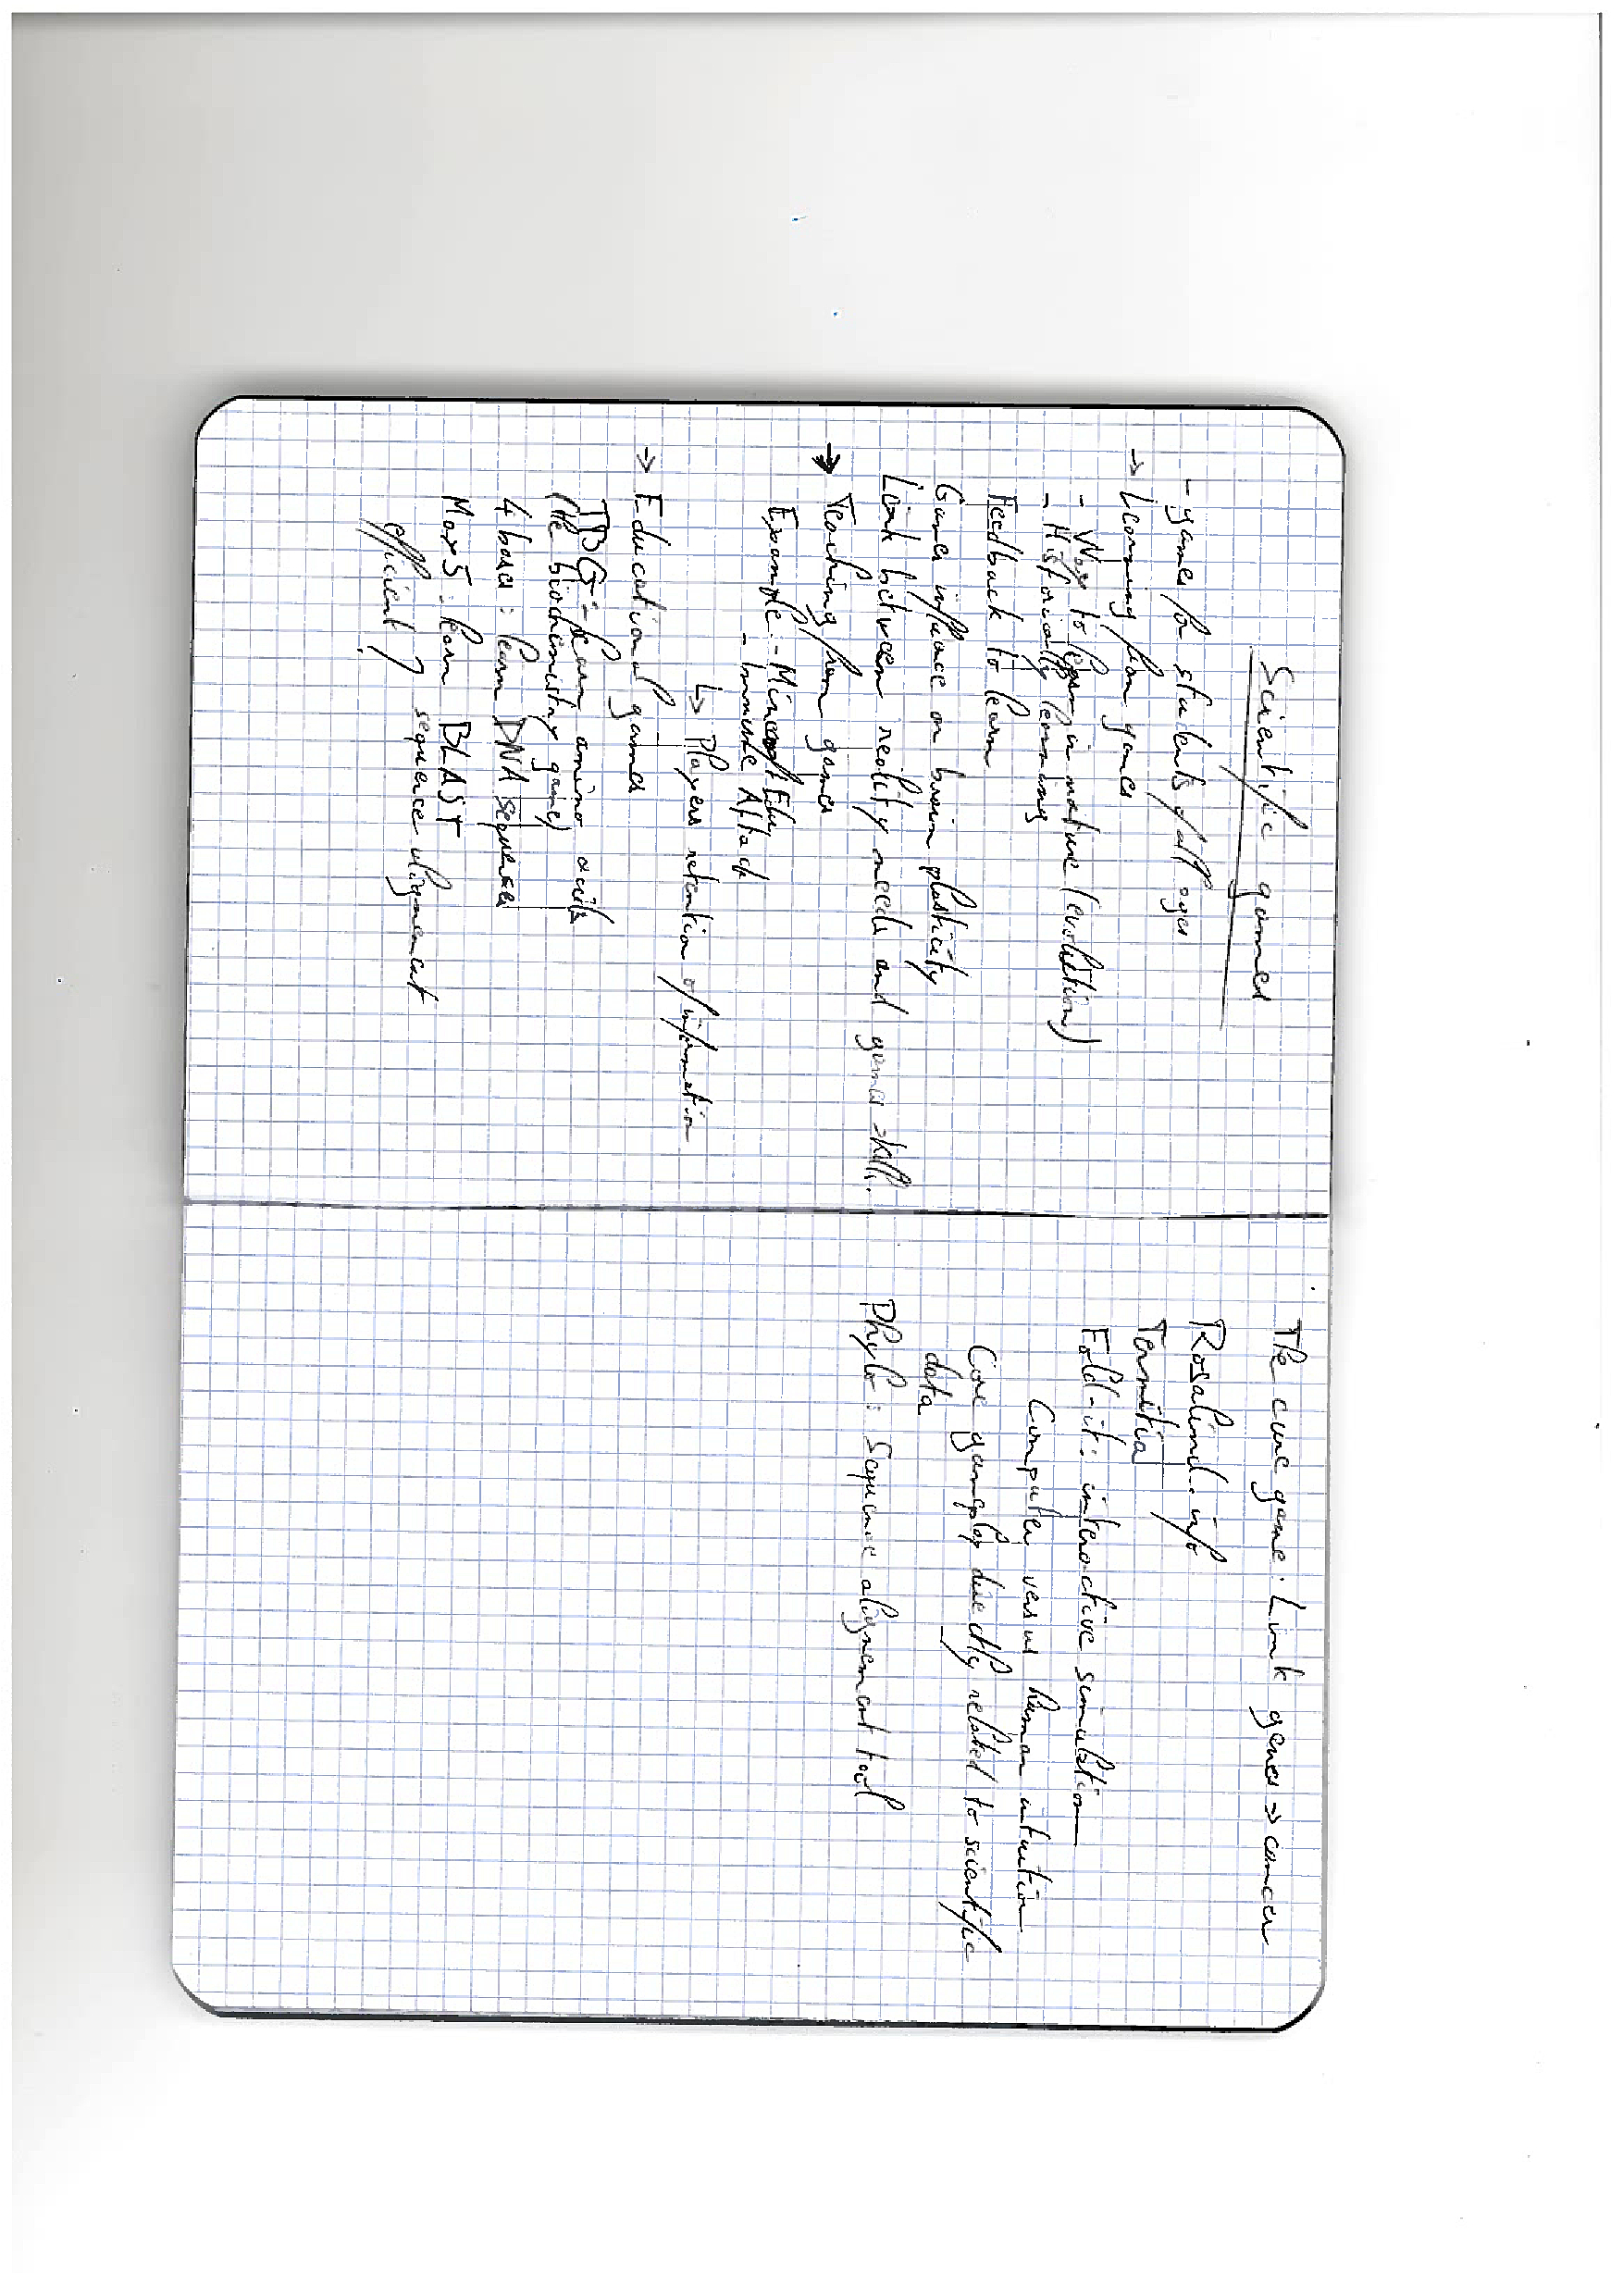 Scientific games
- games for students of all ages
-> Learning from games
- Way to learn in nature (evolution)
- Historically learning
Feedback to learn
Games influence on brain plasticity
Link between reality needs and games skills.
-> Teaching from games
Example: - Minecraft Edu
- Immune Attack
↳ Players retention of information
-> Educational games
TBG: learn amino acids
(the biochemistry game)
4 bases: learn DNA sequences
Max5: learn BLAST
efficient ? sequence alignment
The cure game: Link genes -> cancer
Rosalind.info
Termitia
Fold-it: interactive simulation
Computer versus human intuition
Core gameplay directly related to scientific
data
Phylo: Sequence alignment tool